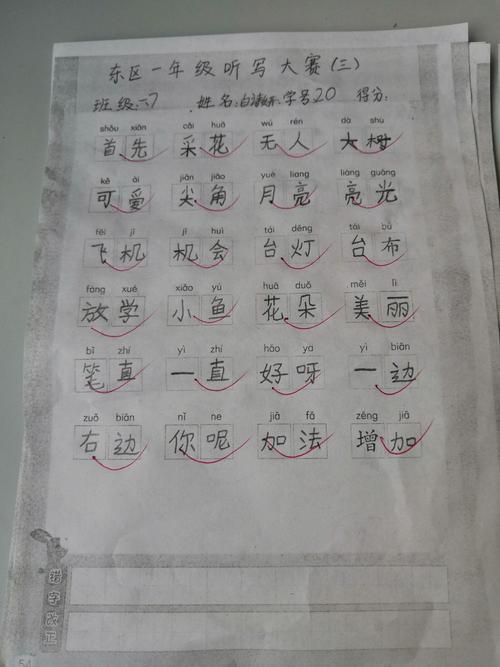 东区一年级听写大赛(三)
班级:六7 姓名:白 学号20 得分:
shǒu xiān cǎi huā wú rén dà shù
首先 采花 无人 大树
kě ài jiān jiǎo yuè liang liàng guāng
可爱 尖角 月亮 亮光
fēi jī jī huì tái dēng tái bù
飞机 机会 台灯 台布
fàng xué xiǎo yú huā duǒ měi lì
放学 小鱼 花朵 美丽
bǐ zhí yì zhí hǎo ya yì biān
笔直 一直 好呀 一边
zuǒ biān nǐ ne jiā fǎ zēng jiā
右边 你呢 加法 增加
错字改正
54